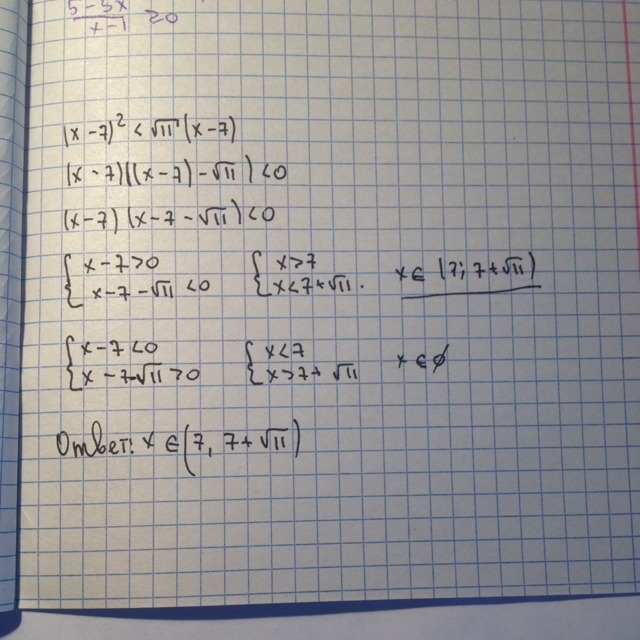 5-5x
x-1 ≥0
(x-7)² < √11 (x-7)
(x-7)((x-7)-√11)<0
(x-7)(x-7-√11)<0
{ x-7>0 { x>7 x∈(7; 7+√11)
{ x-7-√11<0 { x<7+√11.
{ x-7<0 { x<7 x∈∅
{ x-7-√11>0 { x>7+√11
Ответ: x∈(7, 7+√11)